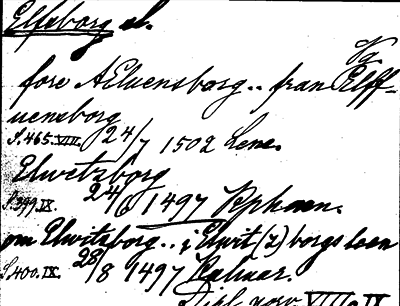 Elfsborg sl.
Vg.
fore AElvensborg.. fran Elff-
uensborg
S.465.VIII. 24/7 1502 Lene.
Elwetzborg
S.399.IX. 24/6 1497 Kphavn.
om Elwitzborg.. i Elwit(z)borgs læen
S.400.IX. 28/8 1497 Kalmar.
Dipl. norv. VIII o IX